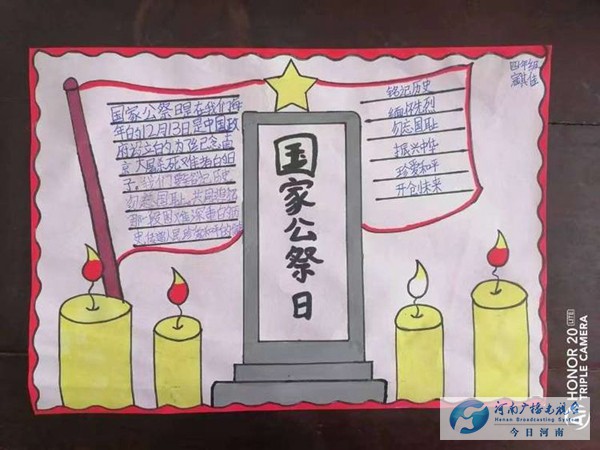 国家公祭日是在我们每
年的12月13日是中国政
府设立的为了纪念南
京大屠杀死难者的日
子。我们要铭记历史
勿忘国耻
那一段
国家公祭日
铭记历史
缅怀先烈
勿忘国耻
振兴中华
珍爱和平
开创未来
四年组
河南广播电视台
Henan Broadcasting System
今日河南
HONOR 20 LITE
AI TRIPLE CAMERA